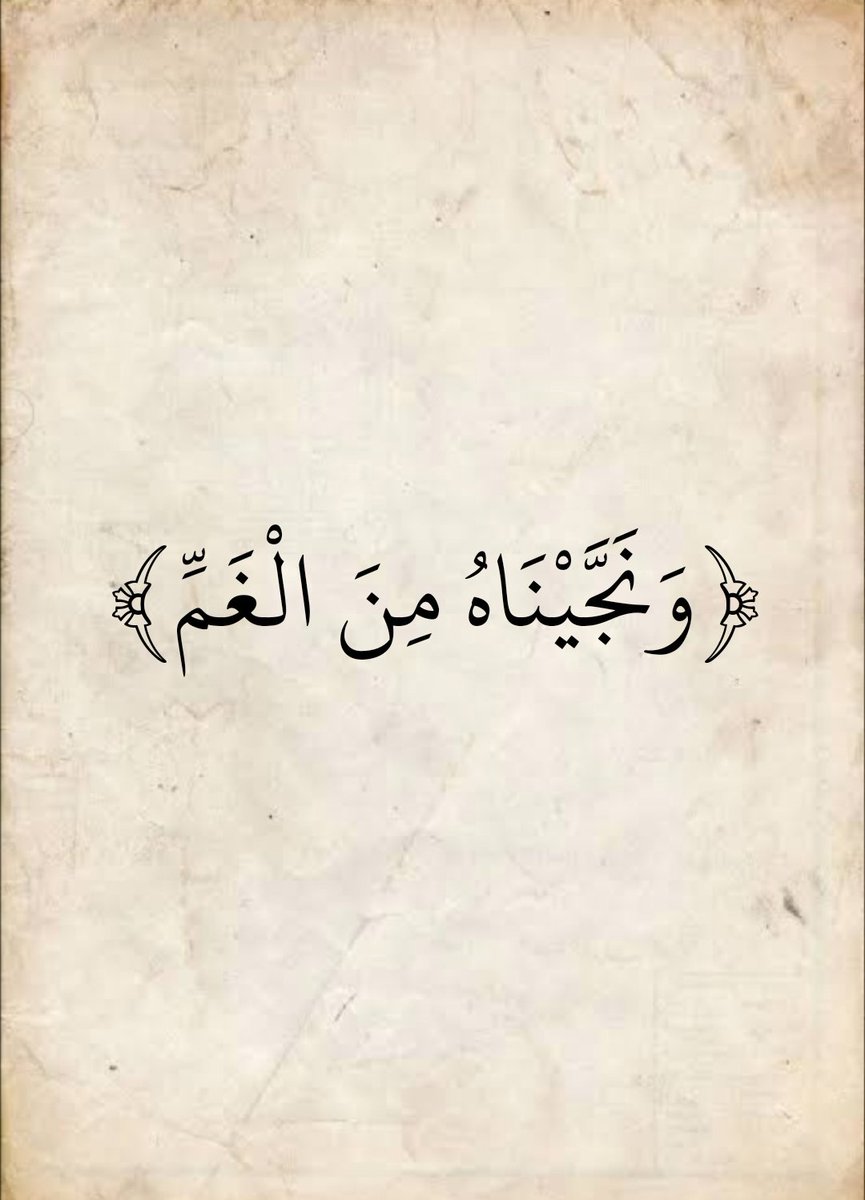 ﴿وَنَجَّيْنَاهُ مِنَ الْغَمِّ﴾